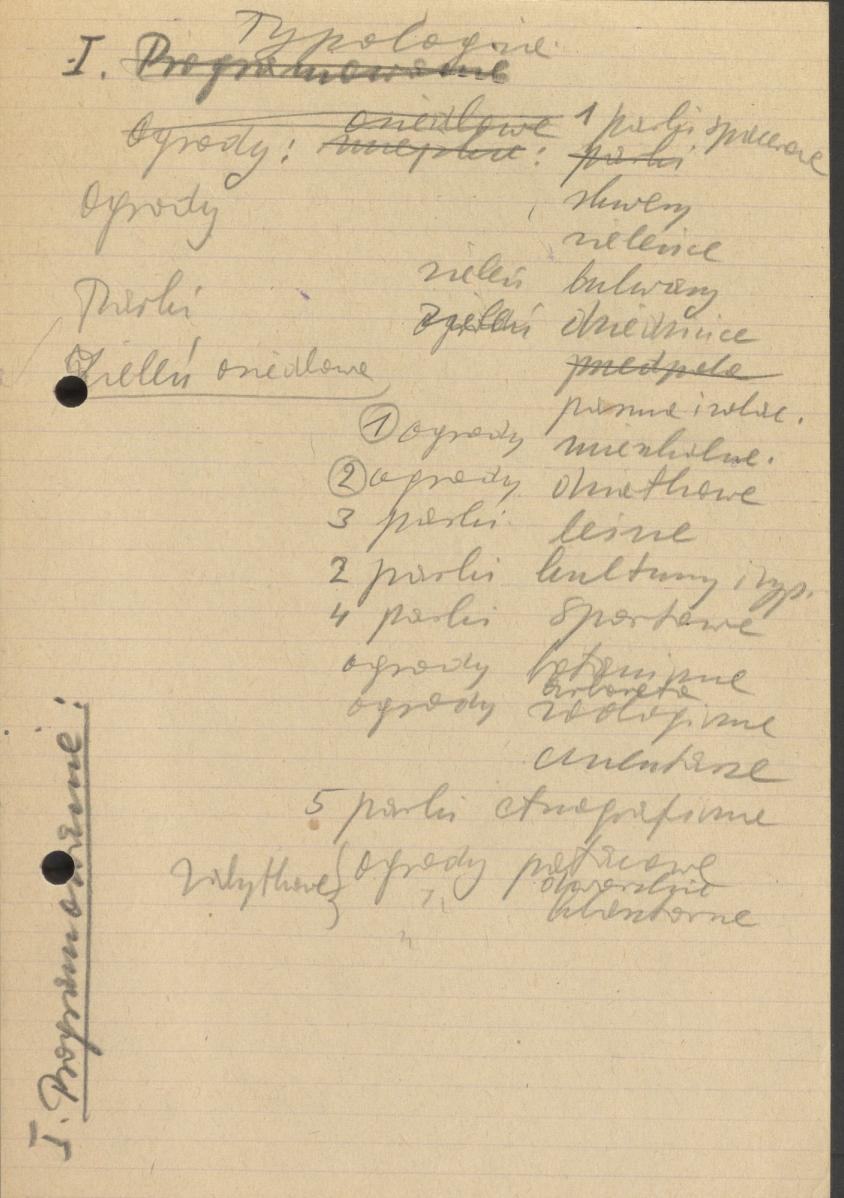 Typologie
I. Programowanie
osiedlowe 1 parki spacerowe
Ogrody: miejskie: parki
Ogrody skwery
zieleńce
zieleń bulwary
Parki ogródki dziedzińce
Zieleń osiedlowa przedpola
pasma izolac.
① ogrody mieszkalne.
② ogrody działkowe
3 parki leśne
2 parki kultury i wyp.
4 parki sportowe
ogrody botaniczne
arboreta
ogrody zoologiczne
cmentarze
5 parki etnograficzne
Zabytkowe { ogrody pałacowe
" dworskie
" klasztorne
I. Programowanie: